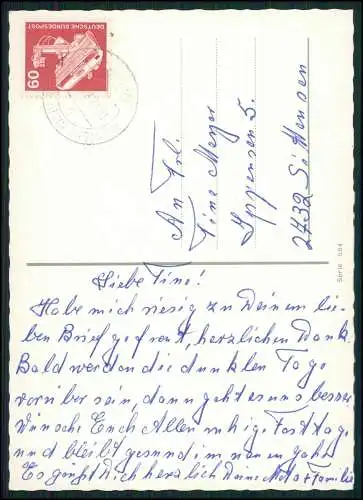 DEUTSCHE BUNDESPOST
60
An Frl.
Tine Meyer
Ippensen 5.
2732 Sittensen
Série 664
Liebe Tine!
Habe mich riesig zu Deinem lie-
ben Brief gefreut, herzlichen Dank
Bald werden die dunklen Tage
vorüber sein, dann geht es uns besser
Wünsche Euch Allen ruhige Festtage
und bleibt gesund im neuen Jahr
Es grüßt Dich herzlich Deine + Familie